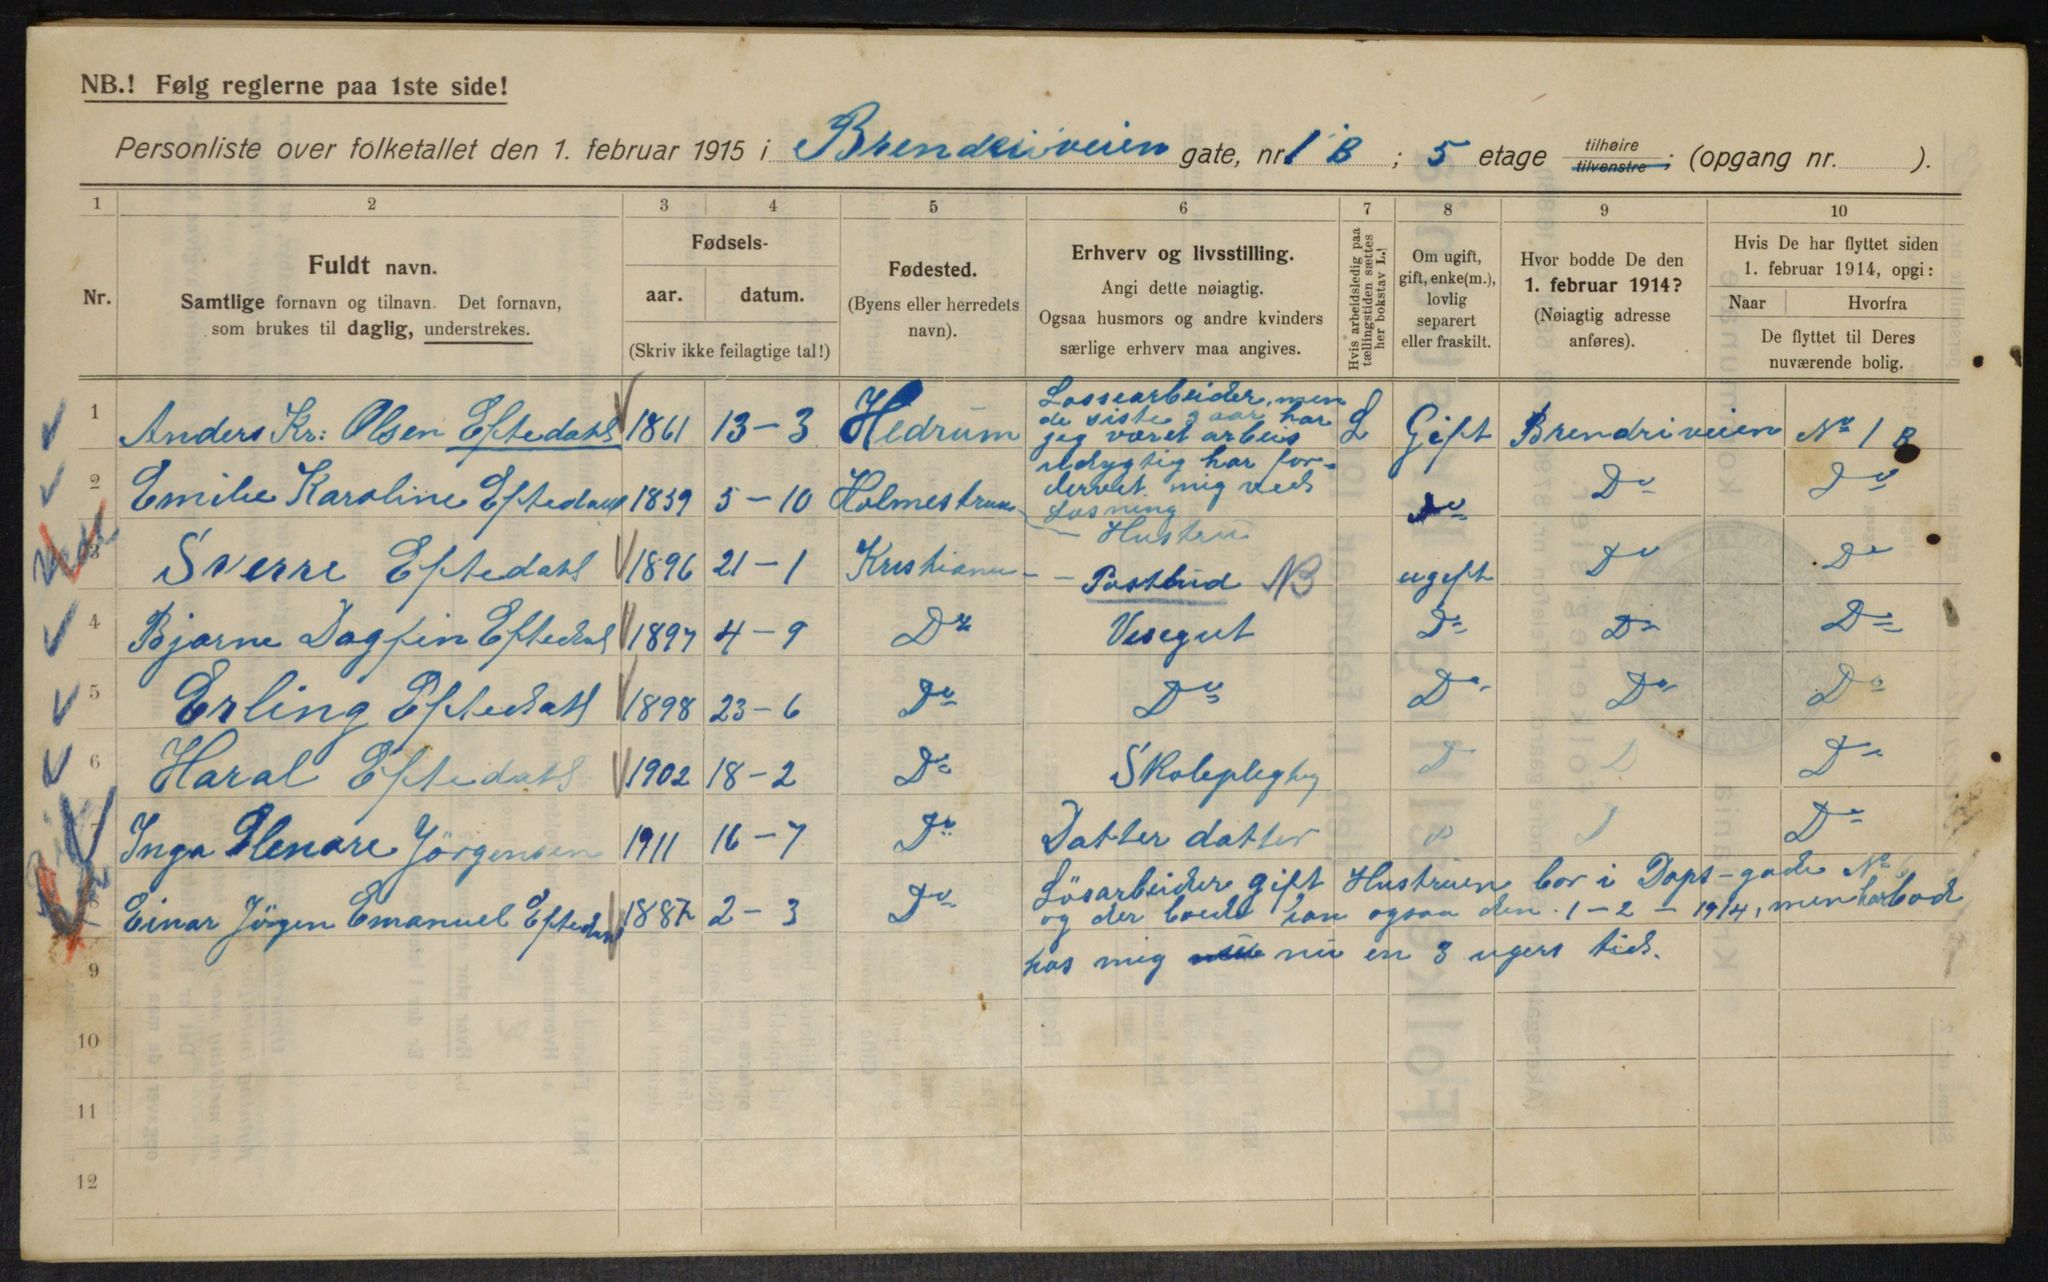 NB.! Følg reglerne paa 1ste side!
Personliste over folketallet den 1. februar 1915 i Brendriveien gate, nr. 1 B ; 5 etage tilhøire tilvenstre ; (opgang nr. ).
1 2 3 4 5 6 7 8 9 10
Nr.
Fuldt navn.
Samtlige fornavn og tilnavn. Det fornavn,
som brukes til daglig, understrekes.
Fødsels-
aar. datum.
(Skriv ikke feilagtige tal!)
Fødested.
(Byens eller herredets
navn).
Erhverv og livsstilling.
Angi dette nøiagtig.
Ogsaa husmors og andre kvinders
særlige erhverv maa angives.
Hvis arbeidsledig paa
tællingstiden sættes
her bokstav L.
Om ugift,
gift, enke(m.),
lovlig
separert
eller fraskilt.
Hvor bodde De den
1. februar 1914?
(Nøiagtig adresse
anføres).
Hvis De har flyttet siden
1. februar 1914, opgi:
Naar Hvorfra
De flyttet til Deres
nuværende bolig.
1 Anders Kr: Olsen Eftedahl 1861 13-3 Hedrum Lossearbeider, men
de siste 3 aar har
jeg været arbeis
udygtig har for-
dervet mig ved
Losning L Gift Brendriveien No 1 B
2 Emilie Karoline Eftedahl 1859 5-10 Holmestrand - Hustru Do Do Do
3 Sverre Eftedahl 1896 21-1 Kristiania - - Postbud NB ugift Do Do
4 Bjarne Dagfin Eftedal 1897 4-9 Do Visegut Do Do Do
5 Erling Eftedahl 1898 23-6 Do Do Do Do Do
6 Haral Eftedahl 1902 18-2 Do Skolepligtig D D Do
7 Inga Elenore Jörgensen 1911 16-7 Do Datter datter D D Do
8 Einar Jörgen Emanuel Eftedahl 1887 2-3 Do Lösarbeider gift Hustruen bor i Dops-gade No 6
og der boede han ogsaa den 1-2-1914, men har bod
hos mig nu en 3 ugers tid.
9
10
11
12